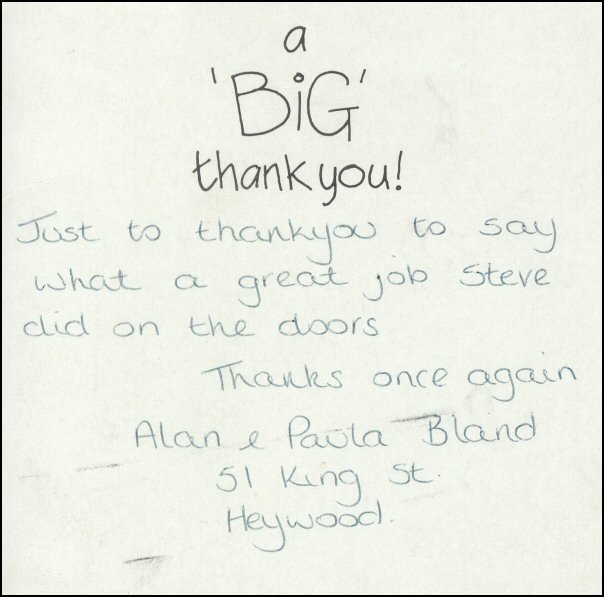 a
'BiG'
thankyou!
Just to thankyou to say
what a great job Steve
did on the doors
Thanks once again
Alan & Paula Bland
51 King St.
Heywood.